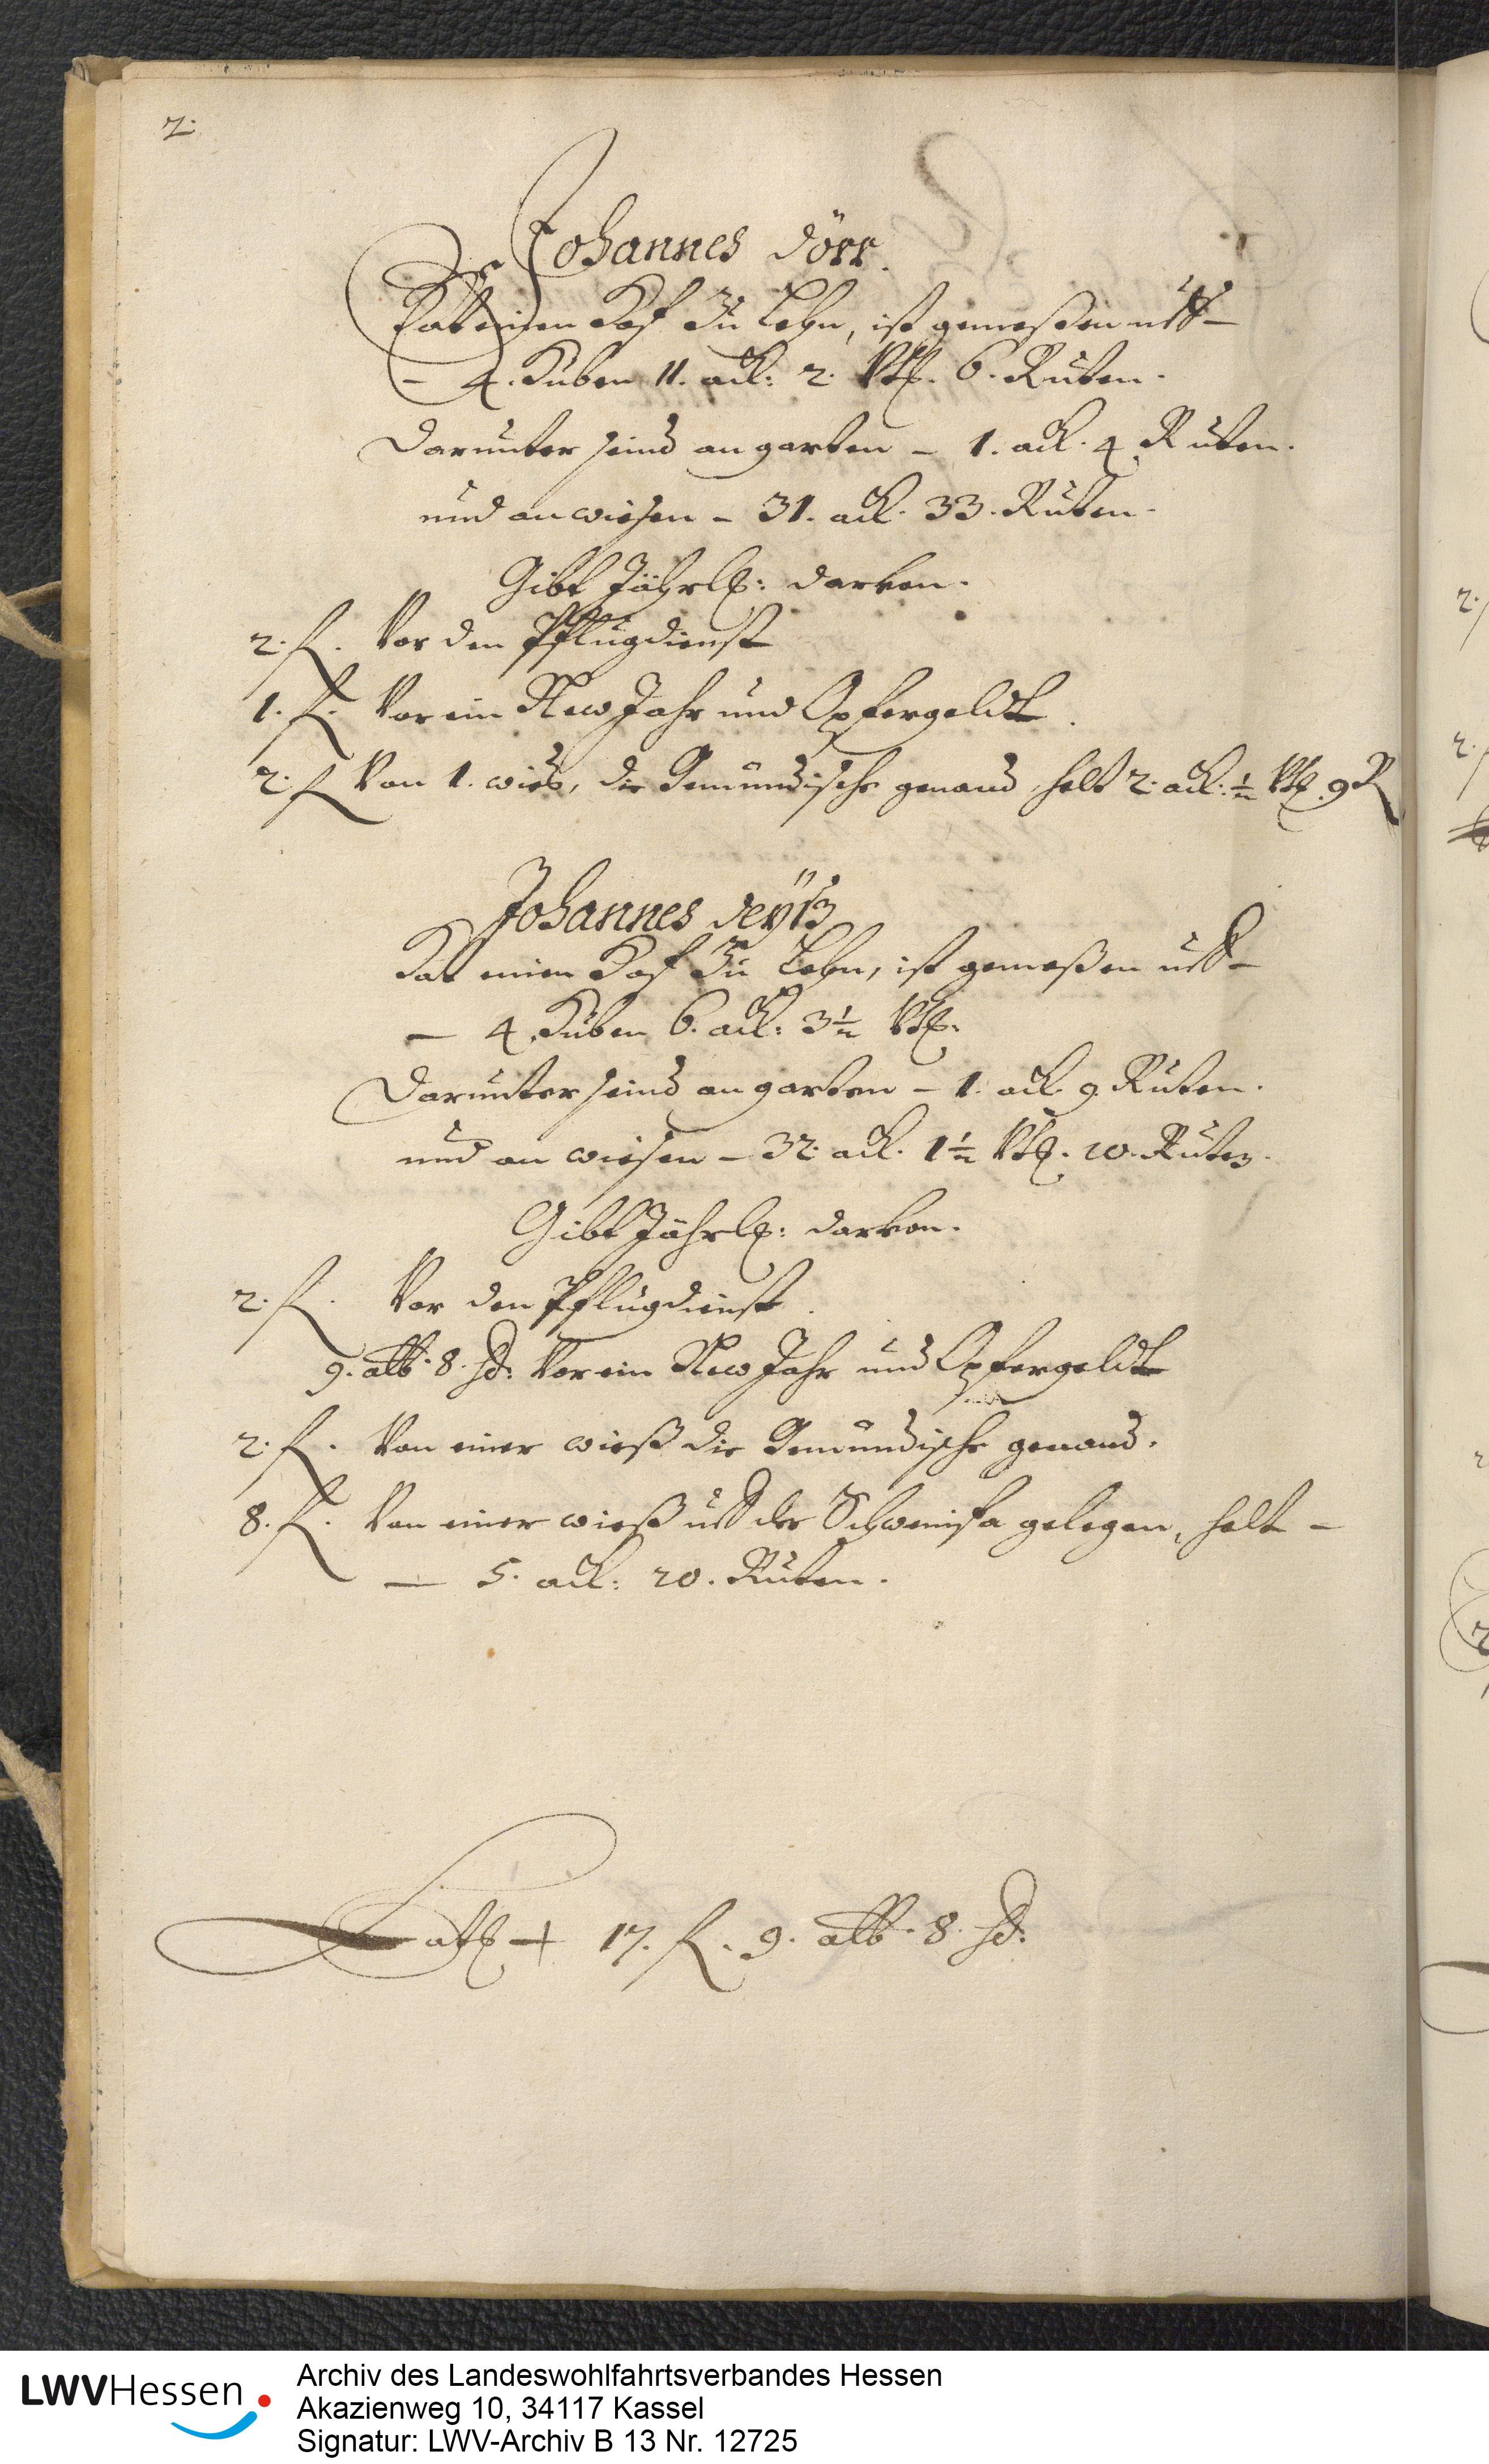 2.
Johannes dörr.
Hat einen Hof Zu Lehn, ist gemeßen uff -
- 4. Huben 11. ack: 2. Vtl. 6. Ruten.
Darunter seind an garten - 1. ack. 4 Ruten.
und an wiesen - 31. ack. 33. Ruten.
Gibt Jährl: darvon.
2. fl. Vor den Pflugdienst
1. fl. Vor ein New Jahr und Opfergeldt.
2. fl Von 1. wies, die Gemündische genand, helt 2. ack: ½ Vtl. 9 R
Johannes deÿß
Hat einen Hof Zu Lehn, ist gemeßen uff -
- 4. Huben 6. ack: 3½ Vtl.
Darunter seind an garten - 1. ack. 9. Ruten.
und an wiesen - 32. ack. 1½ Vtl. 10. Ruten.
Gibt Jährl: darvon.
2. fl. Vor den Pflugdienst.
9. alb. 8. hlr. Vor ein New Jahr und Opfergeldt
2. fl. Von einer wieß die Gemündische genand.
8. fl. Von einer wieß uff der gelegen, helt -
- 5. ack: 20. Ruten.
Latl 17. fl. 9. alb. 8. hlr.
LWVHessen
Archiv des Landeswohlfahrtsverbandes Hessen
Akazienweg 10, 34117 Kassel
Signatur: LWV-Archiv B 13 Nr. 12725